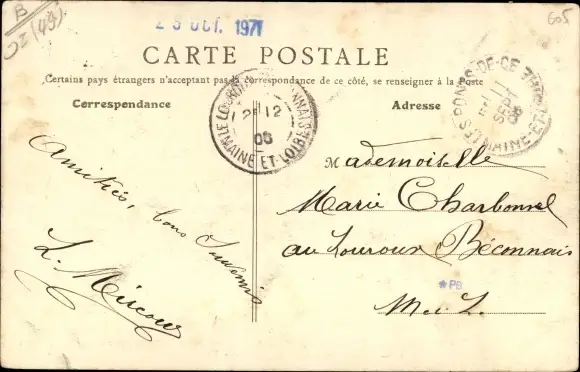 B
605
23 OCT. 1971
CARTE POSTALE
Certains pays étrangers n'acceptant pas la correspondance de ce côté, se renseigner à la Poste
Correspondance
Adresse
LES PONTS-DE-CE
SEPT
MAINE-ET-LOIRE
12
MAINE-ET-LOIRE
Mademoiselle
Marie Charbonnel
au Louroux Béconnais
M et L.
Amitiés, bons Souvenirs
L.
*PB